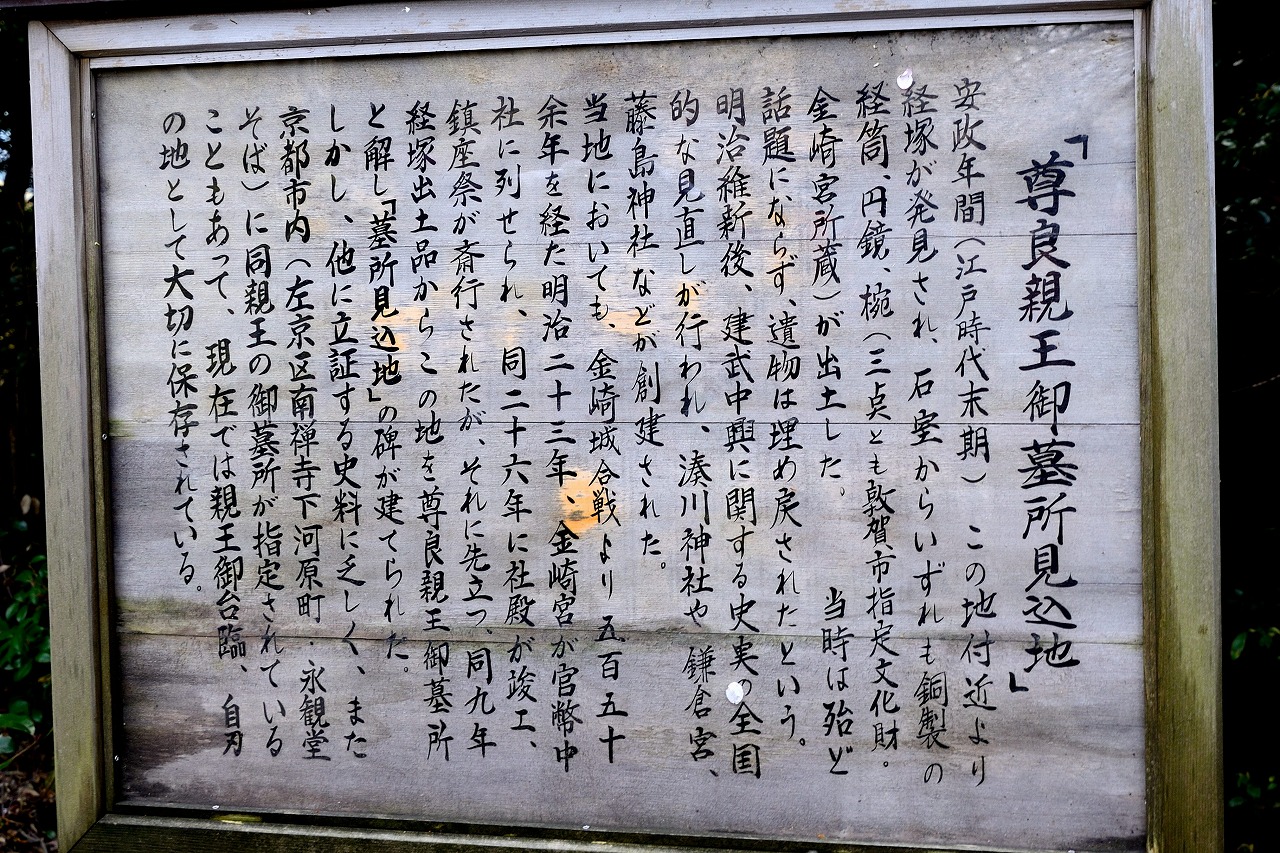 「尊良親王御墓所見込地」
安政年間（江戸時代末期）　この地付近より
経塚が発見され、石室からいずれも銅製の
経筒、円鏡、椀（三点とも敦賀市指定文化財。
金崎宮所蔵）が出土した。　当時は殆ど
話題にならず、遺物は埋め戻されたという。
明治維新後、建武中興に関する史実の全国
的な見直しが行われ、湊川神社や　鎌倉宮、
藤島神社などが創建された。
当地においても、金崎城合戦より　五百五十
余年を経た明治二十三年、金崎宮が官幣中
社に列せられ、同二十六年に社殿が竣工、
鎮座祭が斎行されたが、それに先立つ、同九年
経塚出土品からこの地を尊良親王御墓所
と解し「墓所見込地」の碑が建てられた。
しかし、他に立証する史料に乏しく、また
京都市内（左京区南禅寺下河原町・永観堂
そば）に同親王の御墓所が指定されている
こともあって、現在では親王御台臨、自刃
の地として大切に保存されている。